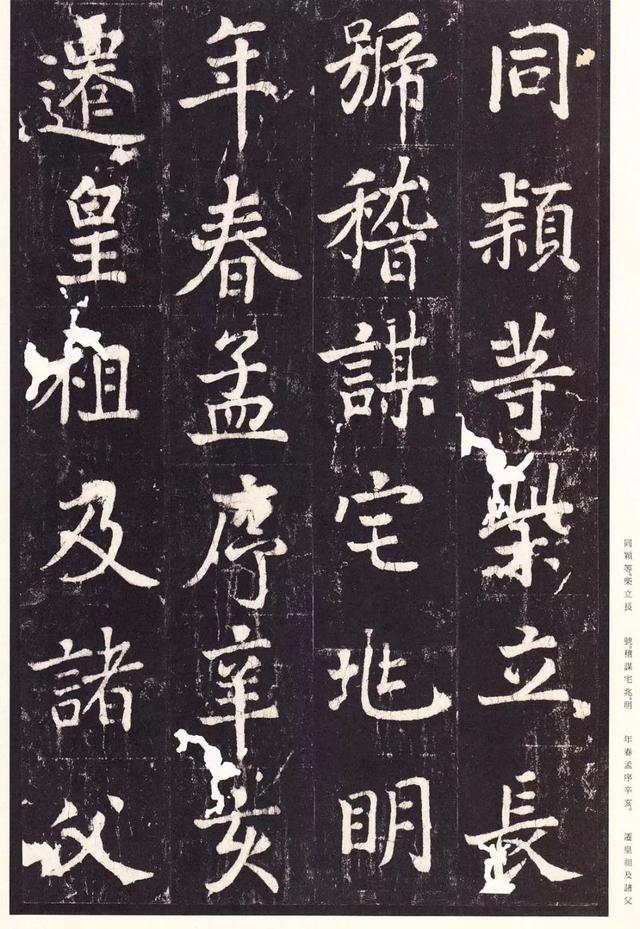 同頴等柴立長
號稽謀宅兆明
年春孟序辛亥
遷皇祖及諸父
同穎等。柴立長 號。稽謀宅兆。明 年春孟序辛亥。 遷皇祖及諸父